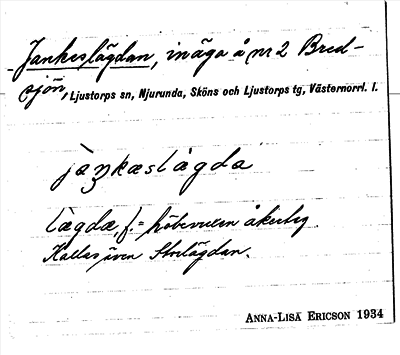 Jankeslägdan, inäga å nr 2 Bred-
sjön, Ljustorps sn, Njurunda, Sköns och Ljustorps tg, Västernorrl. l.
jaŋkæslägda
lägdæ, f. = höbevuxen åkerteg.
Kallas även Strelägdan.
ANNA-LISA ERICSON 1934